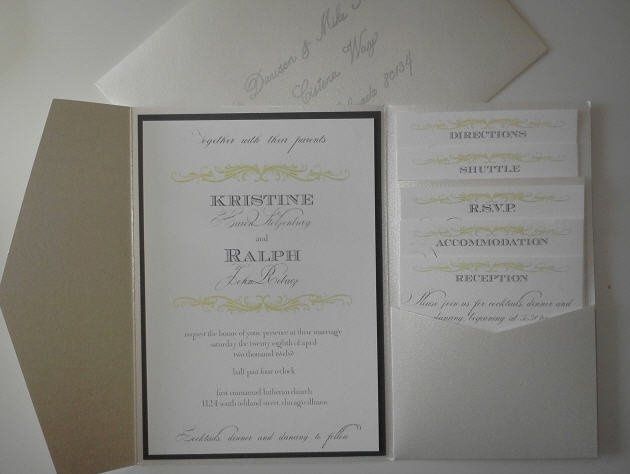 Dawson & Mike
Cistena Way
80134
Together with their parents
KRISTINE
Karen
and
RALPH
John
request the honor of your presence at their marriage
saturday the twenty eighth of april
two thousand
half past four o'clock
first immanuel lutheran church
1124 south ashland street, chicago illinois
Cocktails dinner and dancing to follow
DIRECTIONS
SHUTTLE
R.S.V.P.
ACCOMMODATION
RECEPTION
Please join us for cocktails dinner and
dancing beginning at